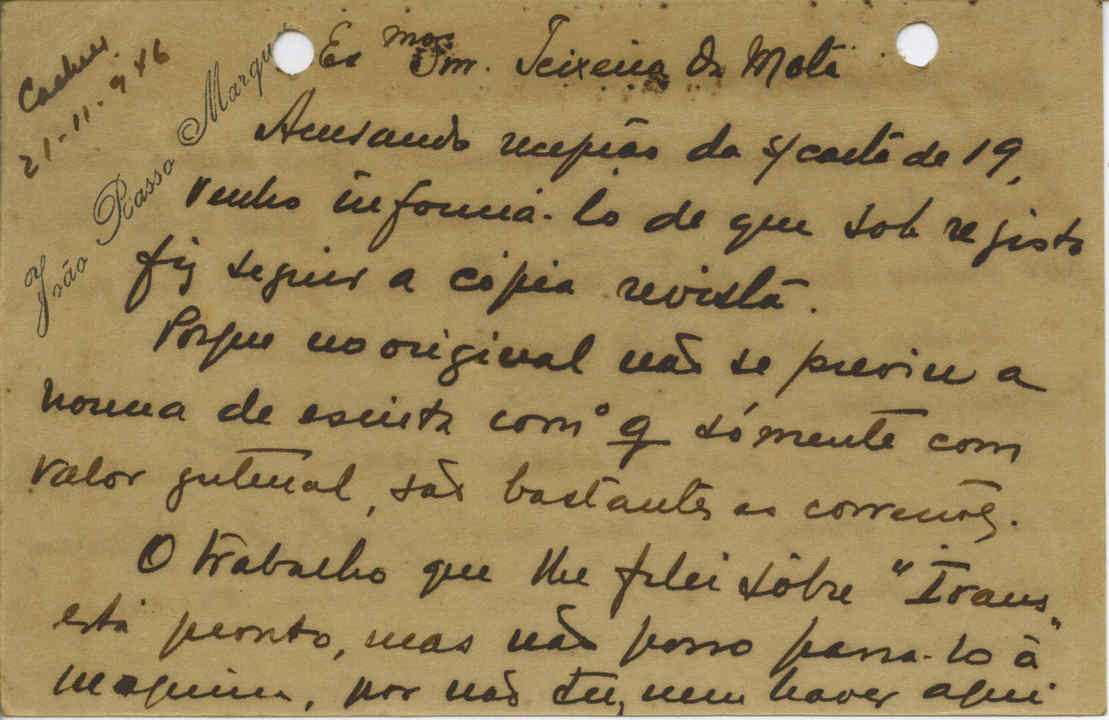 Cacheu
21-11-946
João Basso Marques
Exmos Snr. Teixeira da Mota
Acusando recepção da s/ carta de 19,
venho informá-lo de que sob registo
fiz seguir a cópia revista.
Porque no original não se previu a
norma de escrita com o g sómente com
valor gutural, são bastantes as correcções.
O trabalho que lhe falei sôbre "Irans"
está pronto, mas não posso passa-lo à
maquina, por não ter, nem haver aqui